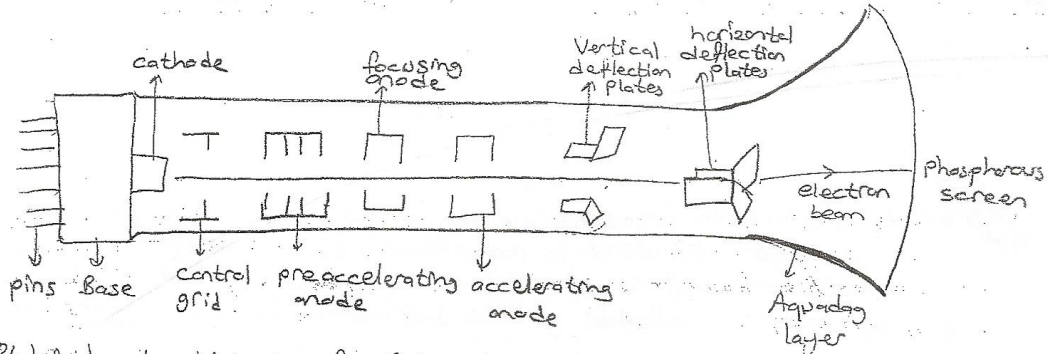 cathode
focusing
anode
Vertical
deflection
plates
horizontal
deflection
plates
phosphorous
screen
electron
beam
pins
Base
control
grid
preaccelerating
anode
accelerating
anode
Aquadag
layer